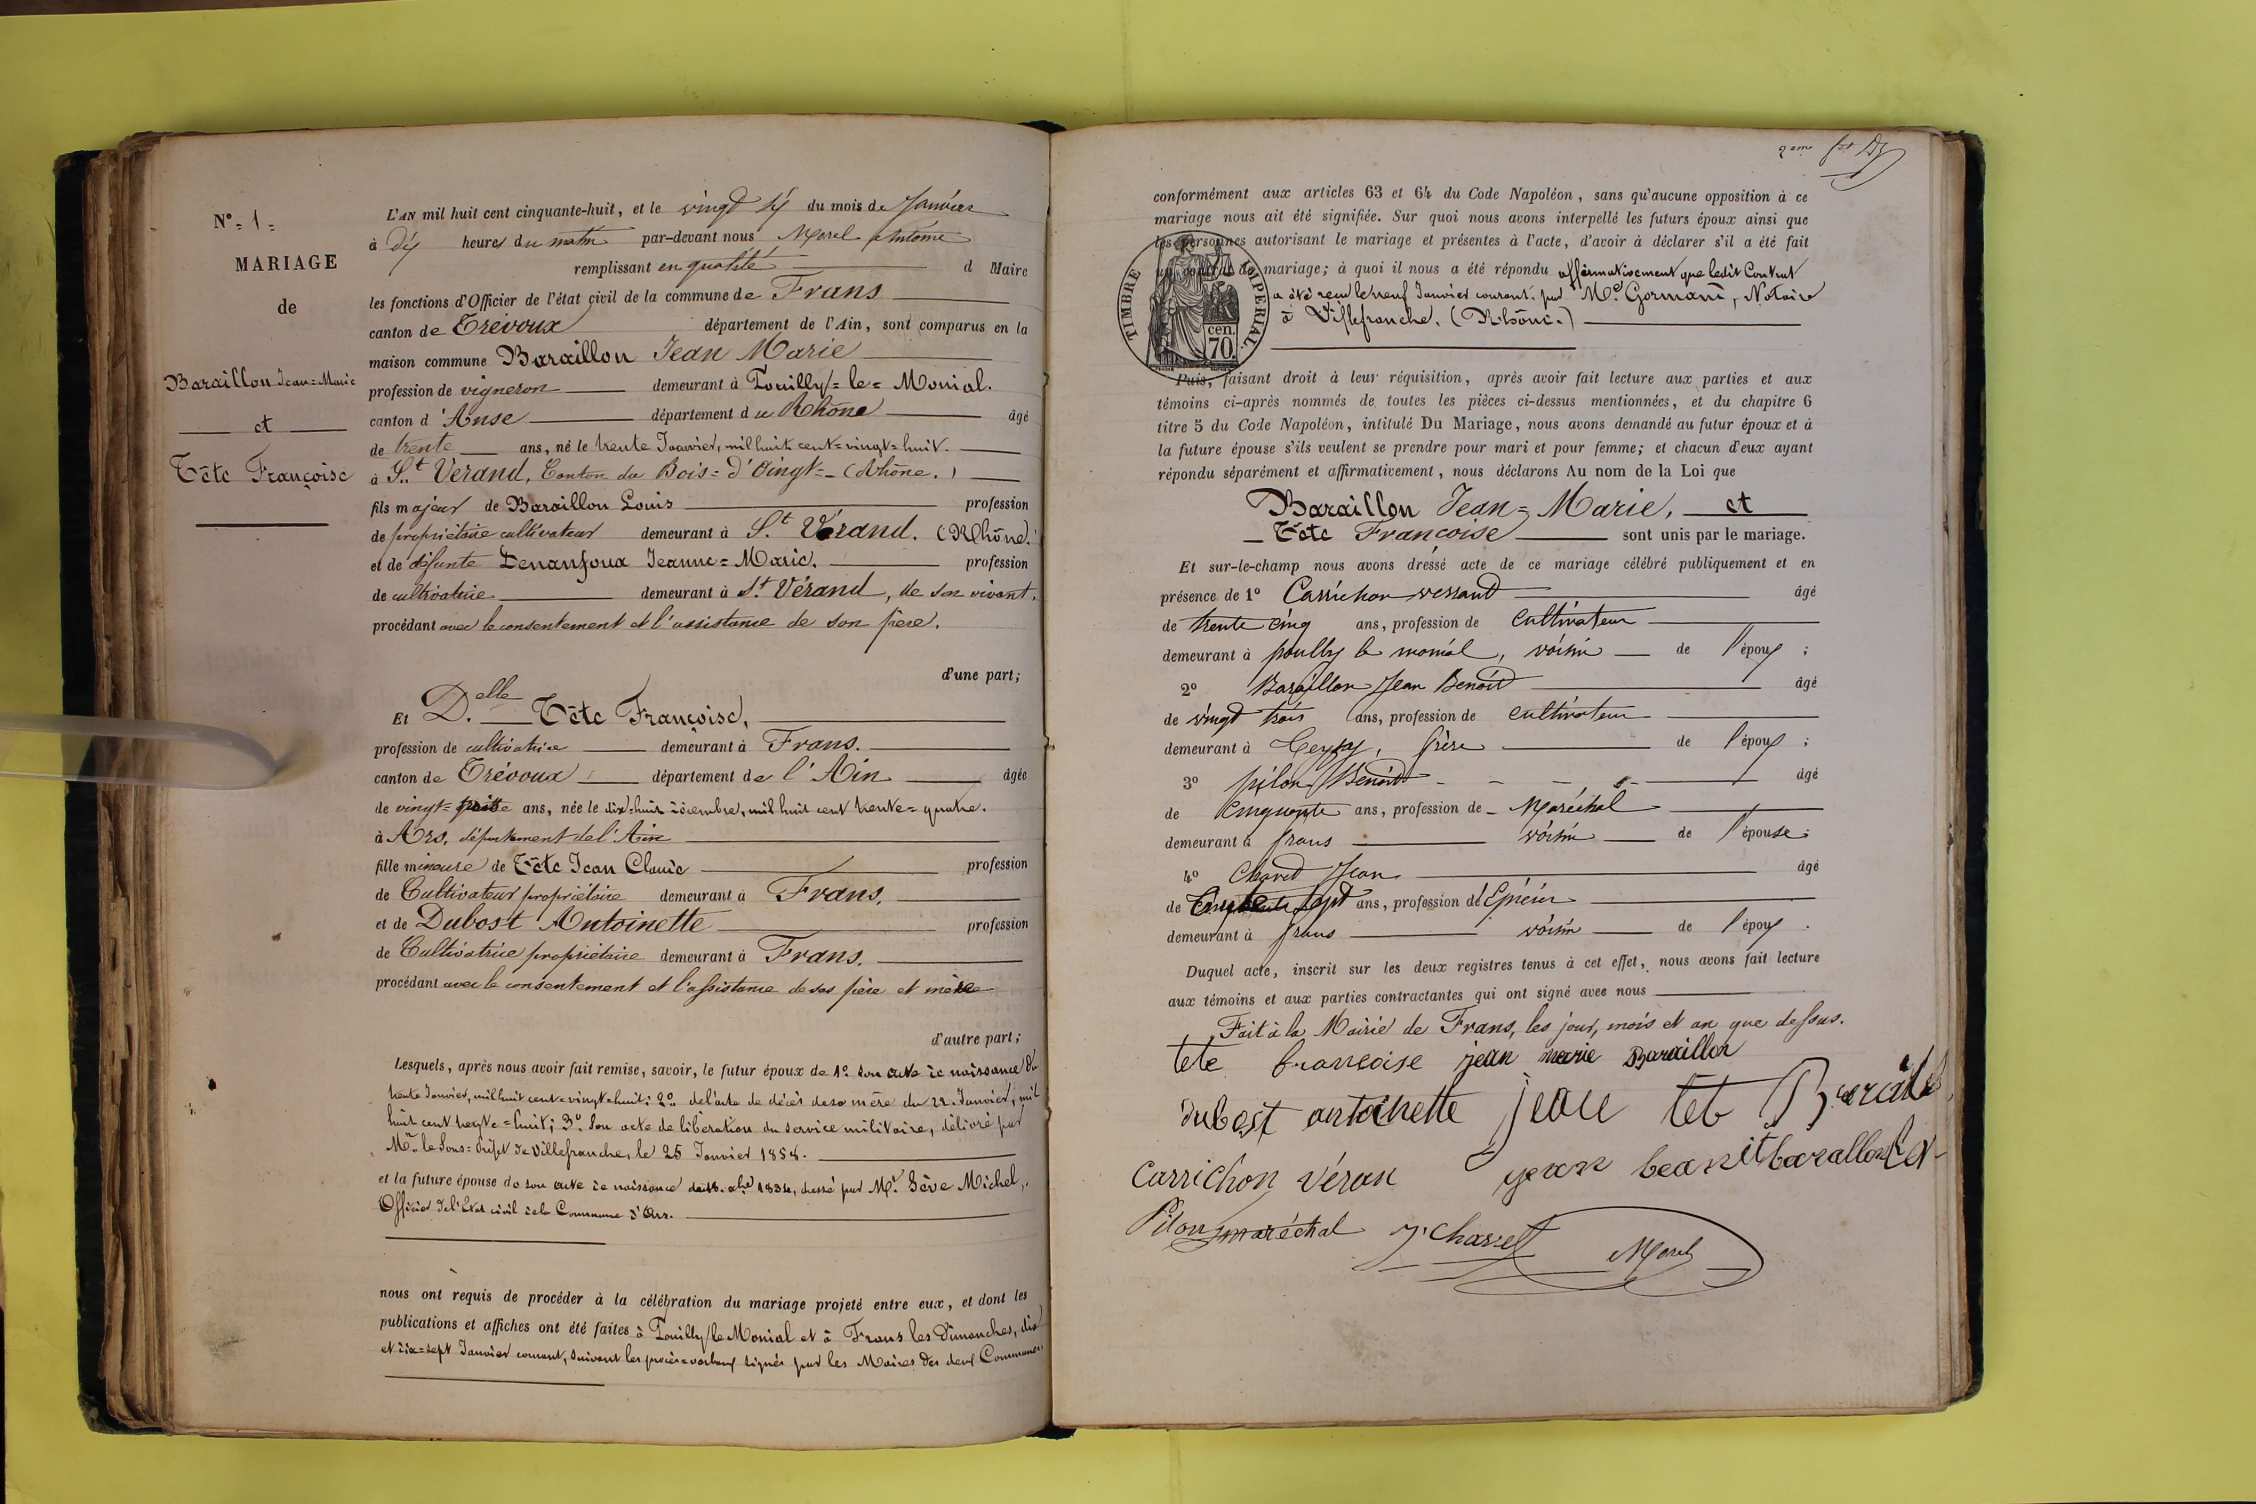 N°= 1=
MARIAGE
de
Baraillon Jean=Marie
et
Tête Françoise
L'AN mil huit cent cinquante-huit, et le vingt six du mois de Janvier
à dix heures du matin par-devant nous Morel Antoine
remplissant en qualité d Maire
les fonctions d'Officier de l'état civil de la commune de Frans
canton de Trévoux département de l'Ain, sont comparus en la
maison commune Baraillon Jean Marie
profession de vigneron demeurant à Pouilly=le=Monial.
canton d'Anse département du Rhône âgé
de trente ans, né le trente Janvier, mil huit cent=vingt=huit.
à St. Vérand, Canton du Bois=d'Oingt=(Rhône.)
fils majeur de Baraillon Louis profession
de propriétaire cultivateur demeurant à St. Vérand. (Rhône.)
et de défunte Jeanne=Marie. profession
de cultivatrice demeurant à St. Vérand, de son vivant.
procédant avec le consentement et l'assistance de son père.
d'une part;
Et Delle. Tête Françoise,
profession de cultivatrice demeurant à Frans.
canton de Trévoux département de l'Ain âgée
de vingt= ans, née le dix-huit décembre, mil huit cent trente=quatre.
à Ars, département de l'Ain
fille mineure de Tête Jean Claude profession
de Cultivateur propriétaire demeurant à Frans.
et de Dubost Antoinette profession
de Cultivatrice propriétaire demeurant à Frans.
procédant avec le consentement et l'assistance de ses père et mère
d'autre part;
Lesquels, après nous avoir fait remise, savoir, le futur époux de 1° son acte de naissance du
trente Janvier, mil huit cent=vingt=huit; 2° de l'acte de décès de sa mère du 22 Janvier, mil
huit cent trente=huit; 3° son acte de libération du service militaire, délivré par
Mr. le Sous=Préfet de Villefranche, le 25 Janvier 1858.
et la future épouse de son acte de naissance du 18. Xbre 1834, dressé par Mr. Sève Michel,
Officier de l'Etat civil de la Commune d'Ars.
nous ont requis de procéder à la célébration du mariage projeté entre eux, et dont les
publications et affiches ont été faites à Pouilly le Monial et à Frans les dimanches, dix
et dix=sept Janvier courant, suivant les procès=verbaux signés par les Maires des deux Communes.
conformément aux articles 63 et 64 du Code Napoléon, sans qu'aucune opposition à ce
mariage nous ait été signifiée. Sur quoi nous avons interpellé les futurs époux ainsi que
les personnes autorisant le mariage et présentes à l'acte, d'avoir à déclarer s'il a été fait
un contrat de mariage; à quoi il nous a été répondu affirmativement que ledit Contrat
a été reçu le neuf Janvier courant. par Me. , Notaire
à Villefranche. (Rhône.)
TIMBRE IMPERIAL.
cen.
70
Puis, faisant droit à leur réquisition, après avoir fait lecture aux parties et aux
témoins ci-après nommés de toutes les pièces ci-dessus mentionnées, et du chapitre 6
titre 5 du Code Napoléon, intitulé Du Mariage, nous avons demandé au futur époux et à
la future épouse s'ils veulent se prendre pour mari et pour femme; et chacun d'eux ayant
répondu séparément et affirmativement, nous déclarons Au nom de la Loi que
Baraillon Jean=Marie, et
Tête Francoise sont unis par le mariage.
Et sur-le-champ nous avons dressé acte de ce mariage célébré publiquement et en
présence de 1° Carrichon âgé
de trente cinq ans, profession de Cultivateur
demeurant à poully le monial, voisin de l'époux;
2° Baraillon Jean Benoit âgé
de vingt trois ans, profession de Cultivateur
demeurant à , frère de l'époux;
3° pilon Benoit âgé
de Cinquante ans, profession de Maréchal
demeurant à frans voisin de l'épouse;
4° Jean âgé
de sept ans, profession d'Epicier
demeurant à frans voisin de l'époux.
Duquel acte, inscrit sur les deux registres tenus à cet effet, nous avons fait lecture
aux témoins et aux parties contractantes qui ont signé avec nous
Fait à la Mairie de Frans, les jour, mois et an que dessus.
tete francoise jean marie Baraillon
dubost antoinette
Carrichon véran
Pilon maréchal J. Chavet Morel